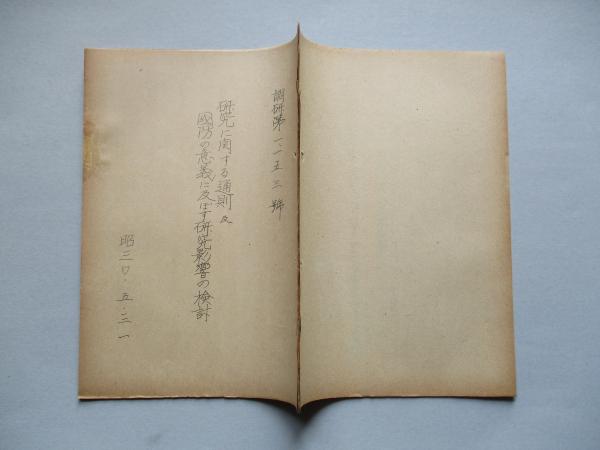 調研第一、一五三號
研究に関する通則及
國防の意義に及ぼす研究影響の検討
昭三〇・五・三一